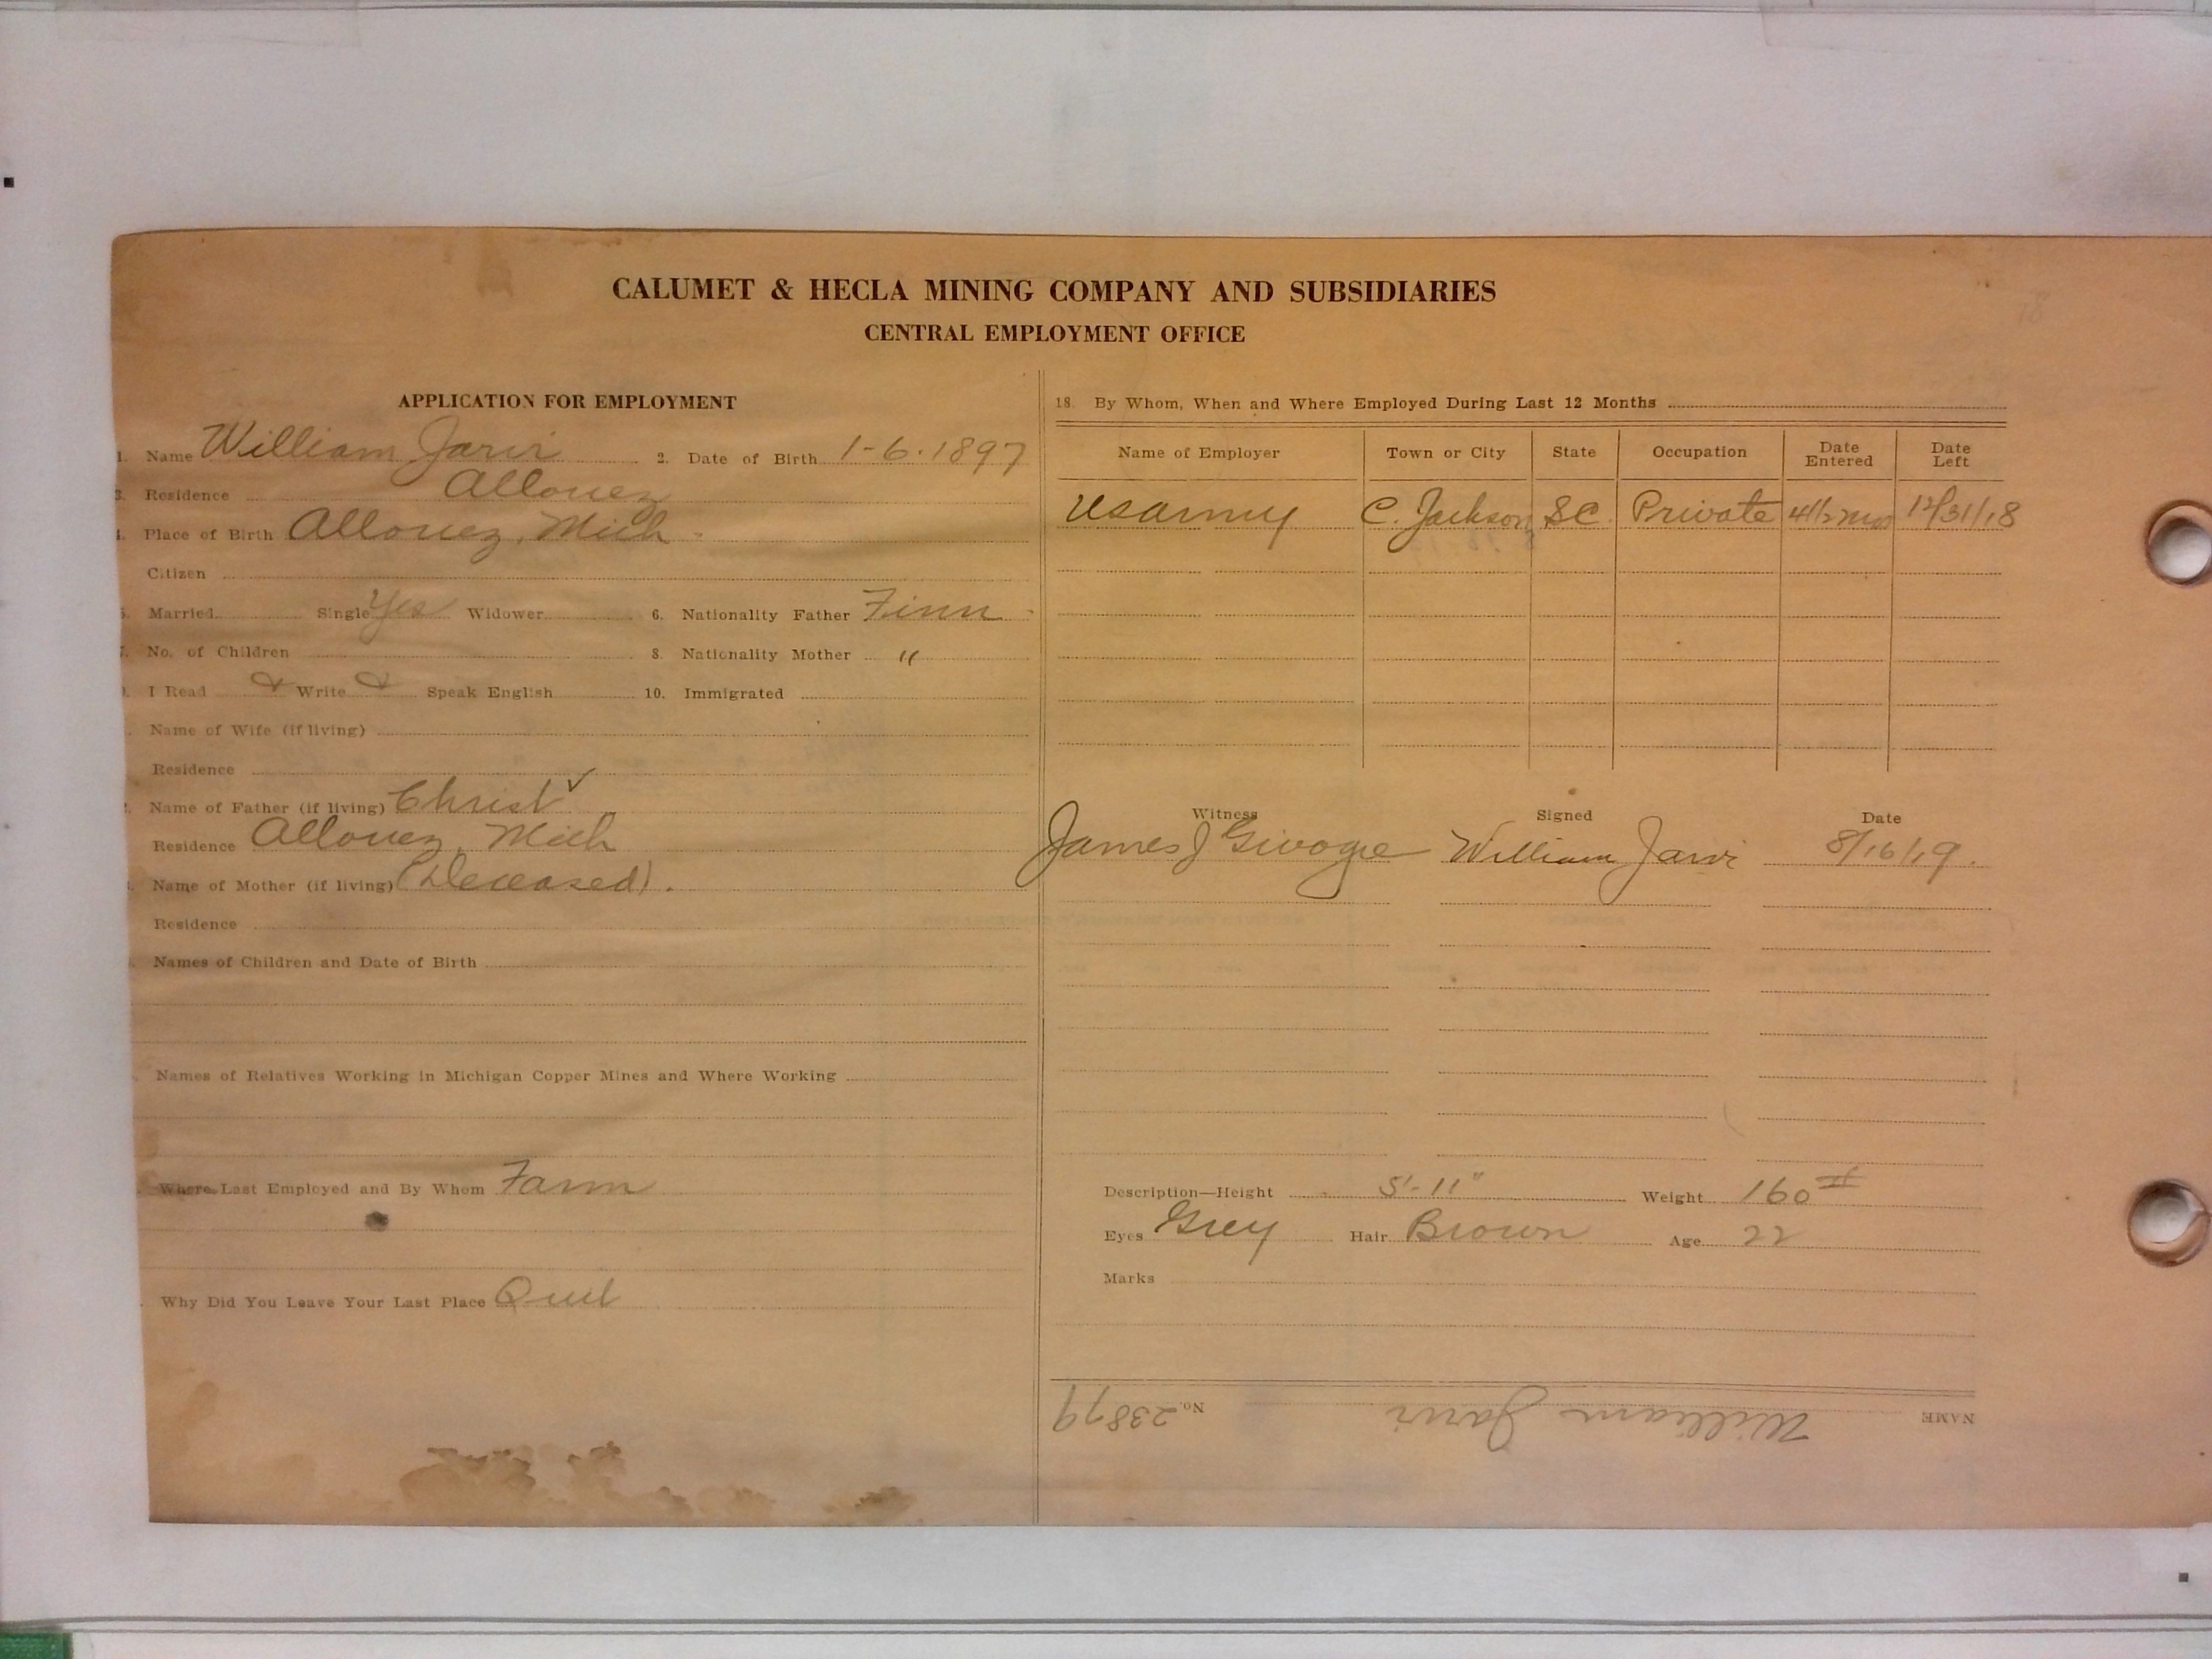 CALUMET & HECLA MINING COMPANY AND SUBSIDIARIES
CENTRAL EMPLOYMENT OFFICE
APPLICATION FOR EMPLOYMENT
1. Name William Jarvi 2. Date of Birth 1-6-1897
3. Residence Allouez
4. Place of Birth Allouez, Mich
Citizen
5. Married Single Yes Widower 6. Nationality Father Finn
7. No. of Children 8. Nationality Mother "
9. I Read Write Speak English 10. Immigrated
Name of Wife (if living)
Residence
Name of Father (if living) Christ ✓
Residence Allouez, Mich
Name of Mother (if living) (Deceased).
Residence
Names of Children and Date of Birth
Names of Relatives Working in Michigan Copper Mines and Where Working
Where Last Employed and By Whom Farm
Why Did You Leave Your Last Place Quit
18. By Whom, When and Where Employed During Last 12 Months
Name of Employer Town or City State Occupation Date Entered Date Left
US Army C. Jackson SC Private 4 1/2 mos 12/31/18
Witness Signed Date
James J William Jarvi 8/16/19.
Description—Height 5'-11" Weight 160 #
Eyes Grey Hair Brown Age 22
Marks
NAME William Jarvi No. 23879